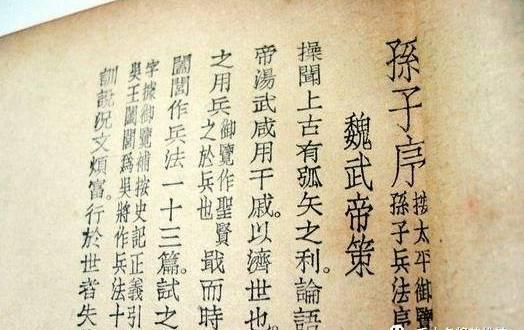 孫子序
按太平御覽
孫子兵法序
魏武帝策
操聞上古有弧矢之利。論語
帝湯武咸用干戚。以濟世也。
之用兵御覽作聖賢
之於兵也戢而時
闔閭作兵法一十三篇。試之
字據御覽補按史記正義引
吳王闔閭爲吳將作兵法十
訓說況文煩富。行於世者失